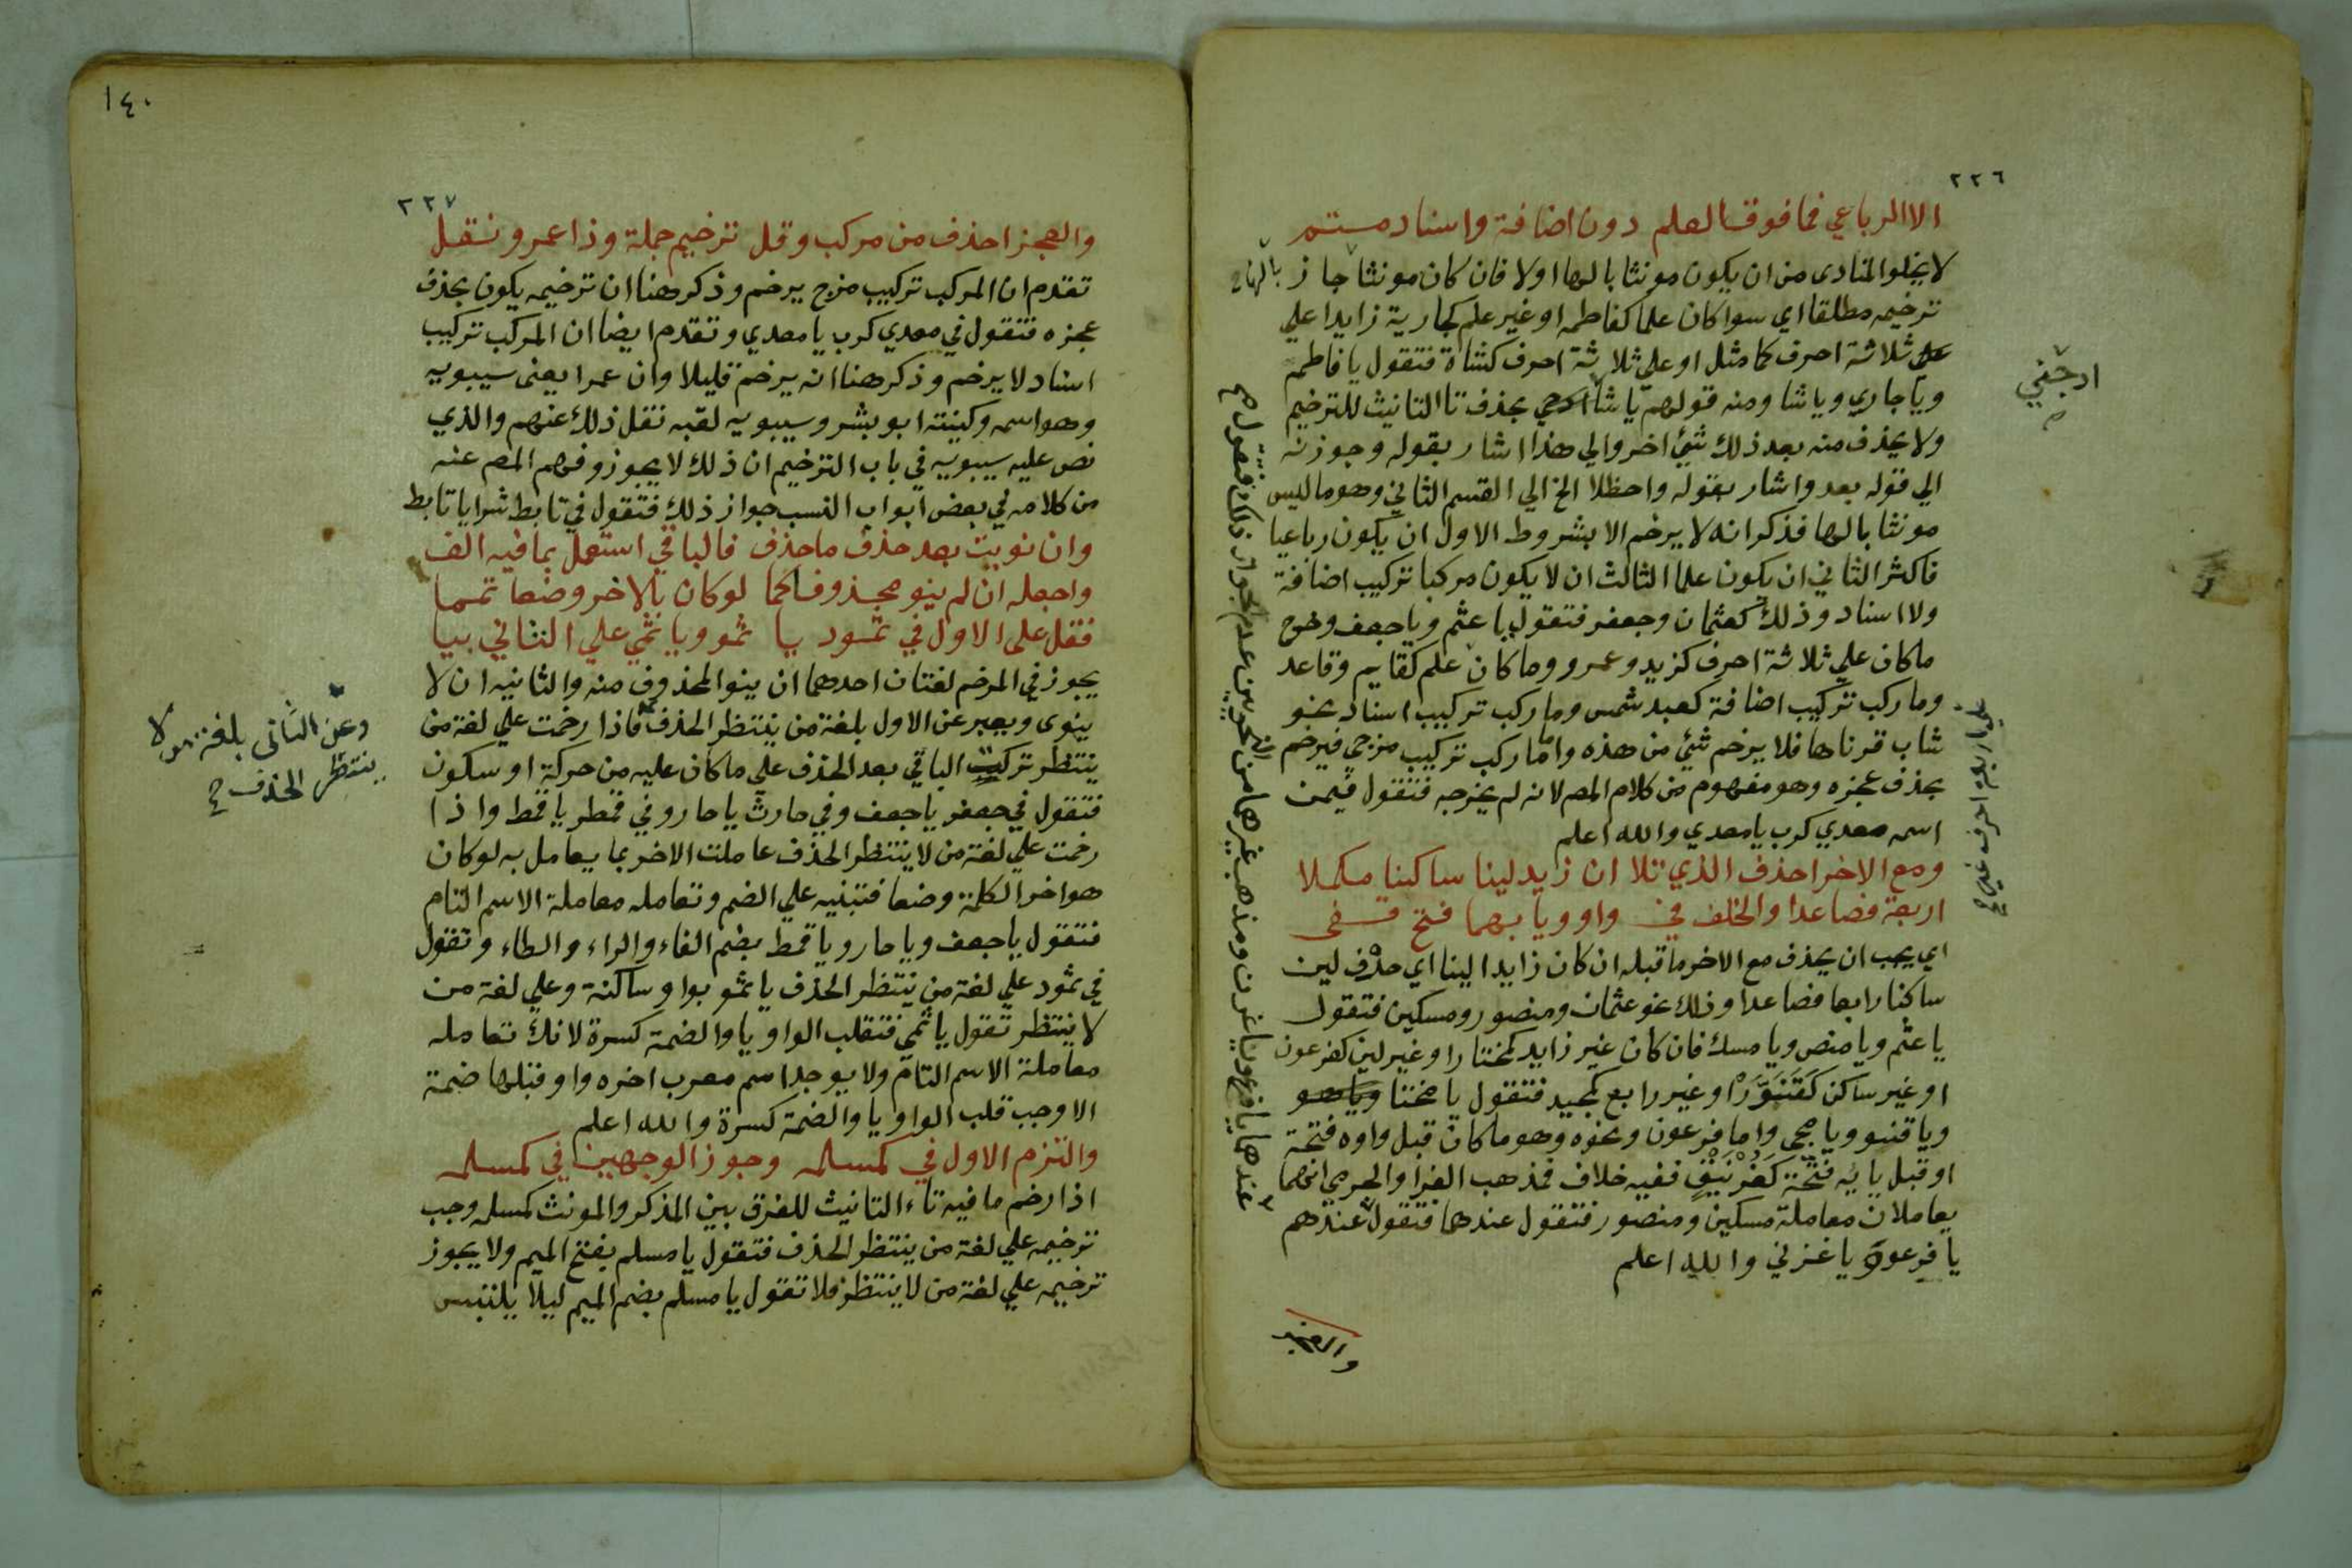 ٢٢٦
الا الرباعي فما فوق العلم دون اضافة واسناد متم
لا يخلوا المنادى من ان يكون مونثا بالها اولا فان كان مونثا بالهاء جاز
ترخيمه مطلقا اي سوا كان علما كفاطمه او غير علم كجارية زايدا علي
ثلاثة احرف كما مثل او علي ثلاثة احرف كشاة فتقول يا فاطم
ويا جاري ويا شا ومنه قولهم يا شا ادجني بحذف تا التانيث للترخيم
ولا يحذف منه بعد ذلك شئ اخر والي هذا اشار بقوله وجوزنه
الي قوله بعد واشار بقوله واحظلا الخ الي القسم الثاني وهو ما ليس
مونثا بالها فذكر انه لا يرخم الا بشروط الاول ان يكون رباعيا
فاكثر الثاني ان يكون علما الثالث ان لا يكون مركبا تركيب اضافة
ولا اسناد وذلك كعثمان وجعفر فتقول يا عثم ويا جعف وخرج
ماكان علي ثلاثة احرف كزيد وعمرو وما كان علم كقايم وقاعد
وما ركب تركيب اضافة كعبد شمس وما ركب تركيب اسناد نحو
شاب قرناها فلا يرخم شئ من هذه واما ما ركب تركيب مزجي فيرخم
بحذف عجزه وهو مفهوم من كلام المصم لانه لم يخرجه فتقول فيمن
اسمه معدي كرب يا معدي والله اعلم
ومع الاخر احذف الذي تلا ان زيد لينا ساكنا مكملا
اربعة فصاعدا والخلف في واو ويا بهما فتح قفى
اي يجب ان يحذف مع الاخر ما قبله ان كان زايدا لينا اي حرف لين
ساكنا رابعا فصاعدا وذلك نحو عثمان ومنصور ومسكين فتقول
يا عثم ويا منص ويا مسك فان كان غير زايد كمختار او غير لين كفرعون
او غير ساكن كقَنَوَّر او غير رابع كمجيد فتقول يا مختا
ويا قنو ويا مجي واما فرعون ونحوه وهو ما كان قبل واوه فتحة
او قبل يايه فتحة كغُرْنَيْقٍ ففيه خلاف فمذهب الفرا والجرمي انهما
يعاملان معاملة مسكين ومنصور فتقول عندهما فتقول عندهم
يا فرعو يا غرني والله اعلم
والعجز
ادجني
١٤٠
٢٢٧
والعجز احذف من مركب وقل ترخيم جملة وذا عمرو نقل
تقدم ان المركب تركيب مزج يرخم وذكر هنا ان ترخيمه يكون بحذف
عجزه فتقول في معدي كرب يا معدي وتقدم ايضا ان المركب تركيب
اسناد لا يرخم وذكر هنا انه يرخم قليلا وان عمرا يعنى سيبويه
وهو اسمه وكنيته ابو بشر وسيبويه لقبه نقل ذلك عنهم والذي
نص عليه سيبويه في باب الترخيم ان ذلك لا يجوز وفهم المصم عنه
من كلامه في بعض ابواب النسب جواز ذلك فتقول في تابط شرا يا تابط
وان نويت بعد حذف ما حذف فالباقي استعمل بما فيه الف
واجعله ان لم ينو محذوف كما لو كان بالاخر وضعا تمما
فقل على الاول في ثمود يا ثمو ويا ثمي علي الثاني بيا
يجوز في المرخم لغتان احدهما ان ينوا المحذوف منه والثانيه ان لا
ينوى ويعبر عن الاول بلغة من ينتظر الحذف فاذا رخمت علي لغة من
ينتظر تركت الباقي بعد الحذف علي ماكان عليه من حركة او سكون
فتقول في جعفر يا جعف وفي حارث يا حار وفي قمطر يا قمط واذا
رخمت علي لغة من لا ينتظر الحذف عاملت الاخر بما يعامل به لوكان
هو اخر الكلمة وضعا فتبنيه علي الضم وتعامله معاملة الاسم التام
فتقول يا جعف ويا حار ويا قمط بضم الفاء والراء والطاء وتقول
في ثمود علي لغة من ينتظر الحذف يا ثمو بواو ساكنة وعلي لغة من
لا ينتظر تقول يا ثمي فتقلب الواو يا والضمة كسرة لانك تعامله
معاملة الاسم التام ولا يوجد اسم معرب اخره واو قبلها ضمة
الا وجب قلب الواو يا والضمة كسرة والله اعلم
والتزم الاول في كمسلمه وجوز الوجهين في كمسلمه
اذا رخم ما فيه تاء التانيث للفرق بين المذكر والمونث كمسلمه وجب
ترخيمه علي لغة من ينتظر الحذف فتقول يا مسلم بفتح الميم ولا يجوز
ترخيمه علي لغة من لا ينتظر فلا تقول يا مسلم بضم الميم ليلا يلتبس
وعن الثانى بلغة من لا
ينتظر الحذف